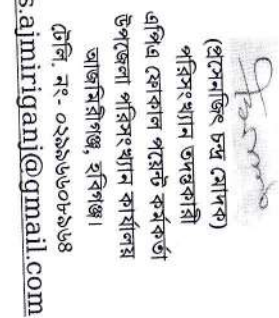 (প্রসেনজিৎ চন্দ্র মোদক)
পরিসংখ্যান তদন্তকারী
এপিএ ফোকাল পয়েন্ট কর্মকর্তা
উপজেলা পরিসংখ্যান কার্যালয়
আজমিরীগঞ্জ, হবিগঞ্জ।
টেলি. নং- ০২৯৯৬৬০৮৯৬৪
s.ajmiriganj@gmail.com